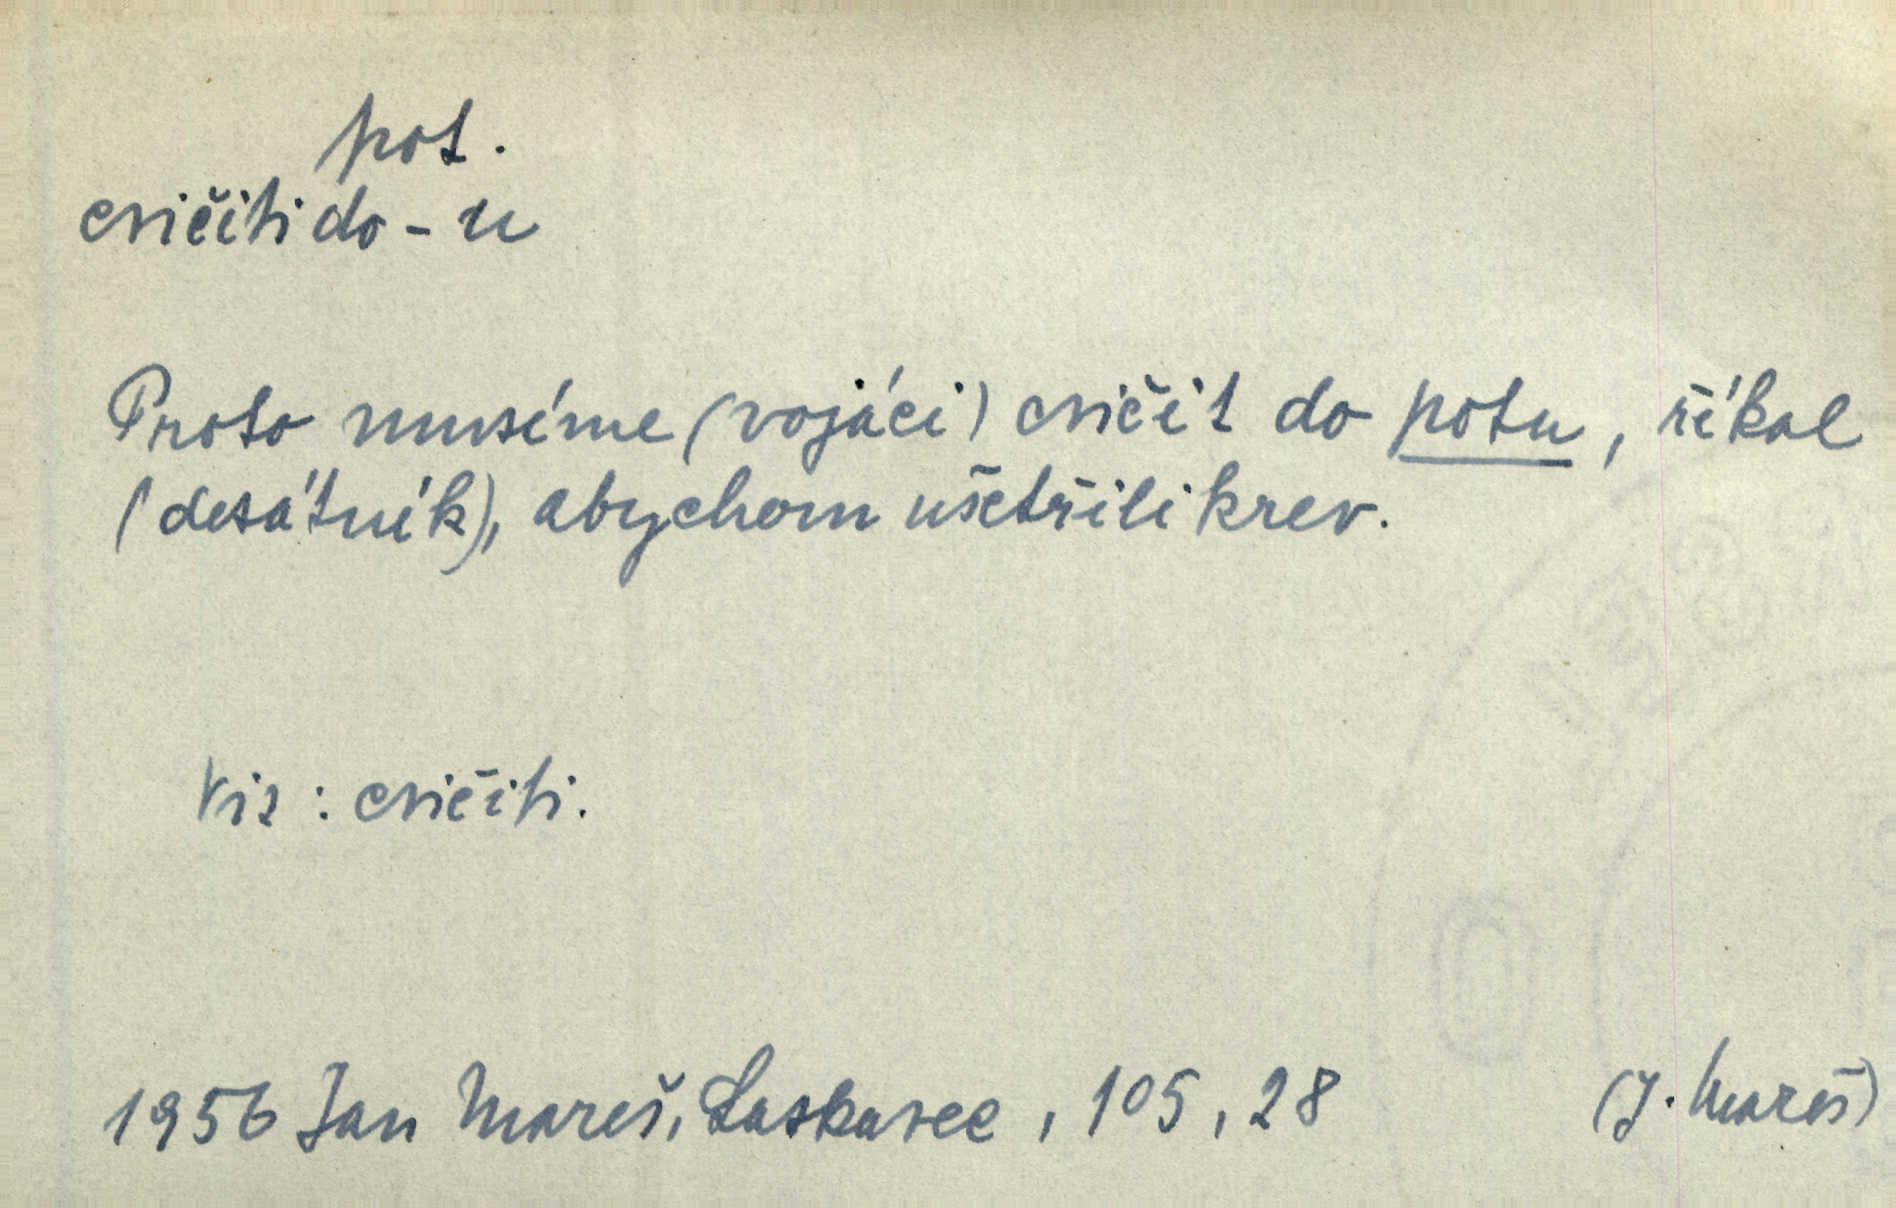 pot.
cvičiti do - u
Proto musíme (vojáci) cvičit do potu, říkal
(desátník), abychom ušetřili krev.
Viz : cvičiti.
1956 Jan Mareš, Laskavec, 105, 28 (J. Mareš)